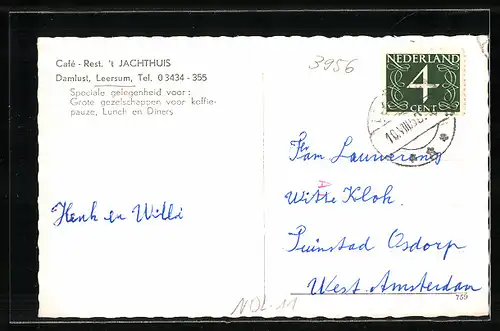 Café - Rest. 't JACHTHUIS
Damlust, Leersum, Tel. 03434 - 355
Speciale gelegenheid voor :
Grote gezelschappen voor koffie-
pauze, Lunch en Diners
3956
NEDERLAND
4
CENT
Fam
A
Witte Klok.
Tuinstad Osdorp
West. Amsterdam
Henk en Willi
NDL-11
759